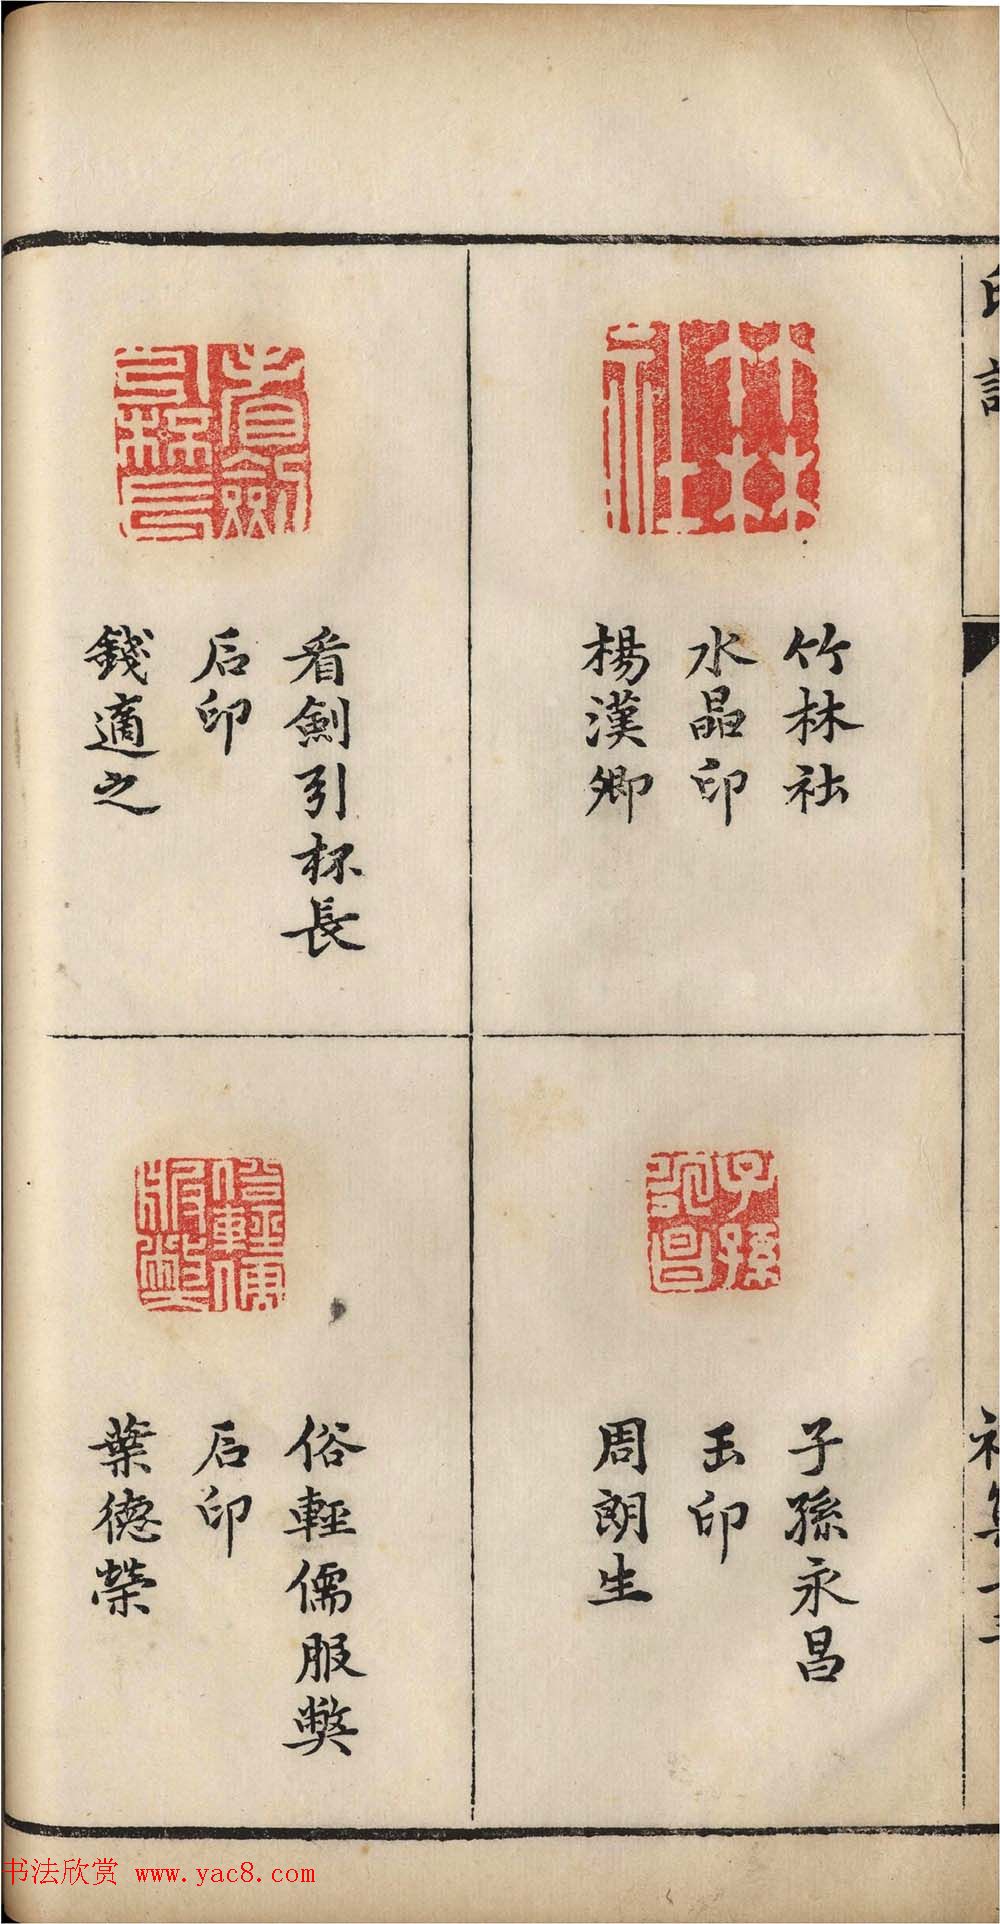 竹林社
水晶印
楊漢卿
子孫永昌
玉印
周朗生
看劍引杯長
石印
錢適之
俗輕儒服獘
石印
葉德榮
书法欣赏 www.yac8.com